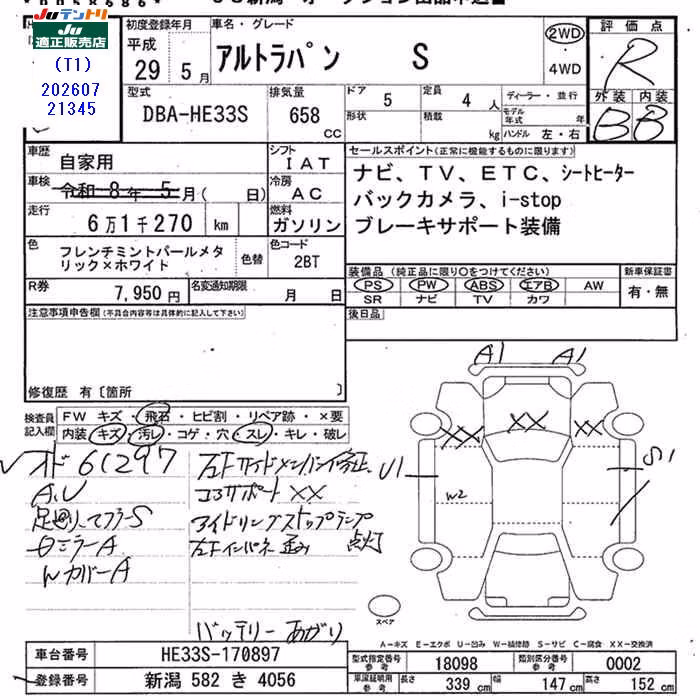 Juテントリ
Ju適正販売店
(T1)
202607
21345
初度登録年月
平成
29 5月
車名・グレード
アルトラパン S
2WD
4WD
評価点
R
外装 内装
B B
型式
DBA-HE33S
排気量
658 CC
ドア 5
形状
定員 4 人
積載 kg
ディーラー・並行
モデル年式 年
ハンドル 左・右
車歴 自家用
シフト IAT
車検 令和 8年 5月( 日)
冷房 AC
走行 6万1千270 km
燃料 ガソリン
セールスポイント(正常に機能するものに限ります)
ナビ、TV、ETC、シートヒーター
バックカメラ、i-stop
ブレーキサポート装備
色 フレンチミントパールメタリック×ホワイト
色替
色コード 2BT
R券 7,950円
名変通知期限 月 日
装備品(純正品に限り○をつけてください)
PS PW ABS エアB AW
SR ナビ TV カワ
新車保証書
有・無
注意事項申告欄(不具合内容等は具体的に記入して下さい)
後日品
修復歴 有〔箇所 〕
検査員記入欄
FW キズ・飛石・ヒビ割・リペア跡・×要
内装 キズ・汚レ・コゲ・穴・スレ・キレ・破レ
オド61297
A、U
Wカバー A
コアサポート XX
アイドリングストップランプ点灯
左ドインパネ歪み
バッテリーあがり
A1 A1
XX XX XX
U1
W2
S1
スペア
A-キズ E-エクボ U-凹み W-補修跡 S-サビ C-腐食 XX-交換済
車台番号 HE33S-170897
登録番号 新潟 582 き 4056
型式指定番号 参考 18098
類別区分番号 参考 0002
車庫証明用 参考 長さ 339 cm 幅 147 cm 高さ 152 cm